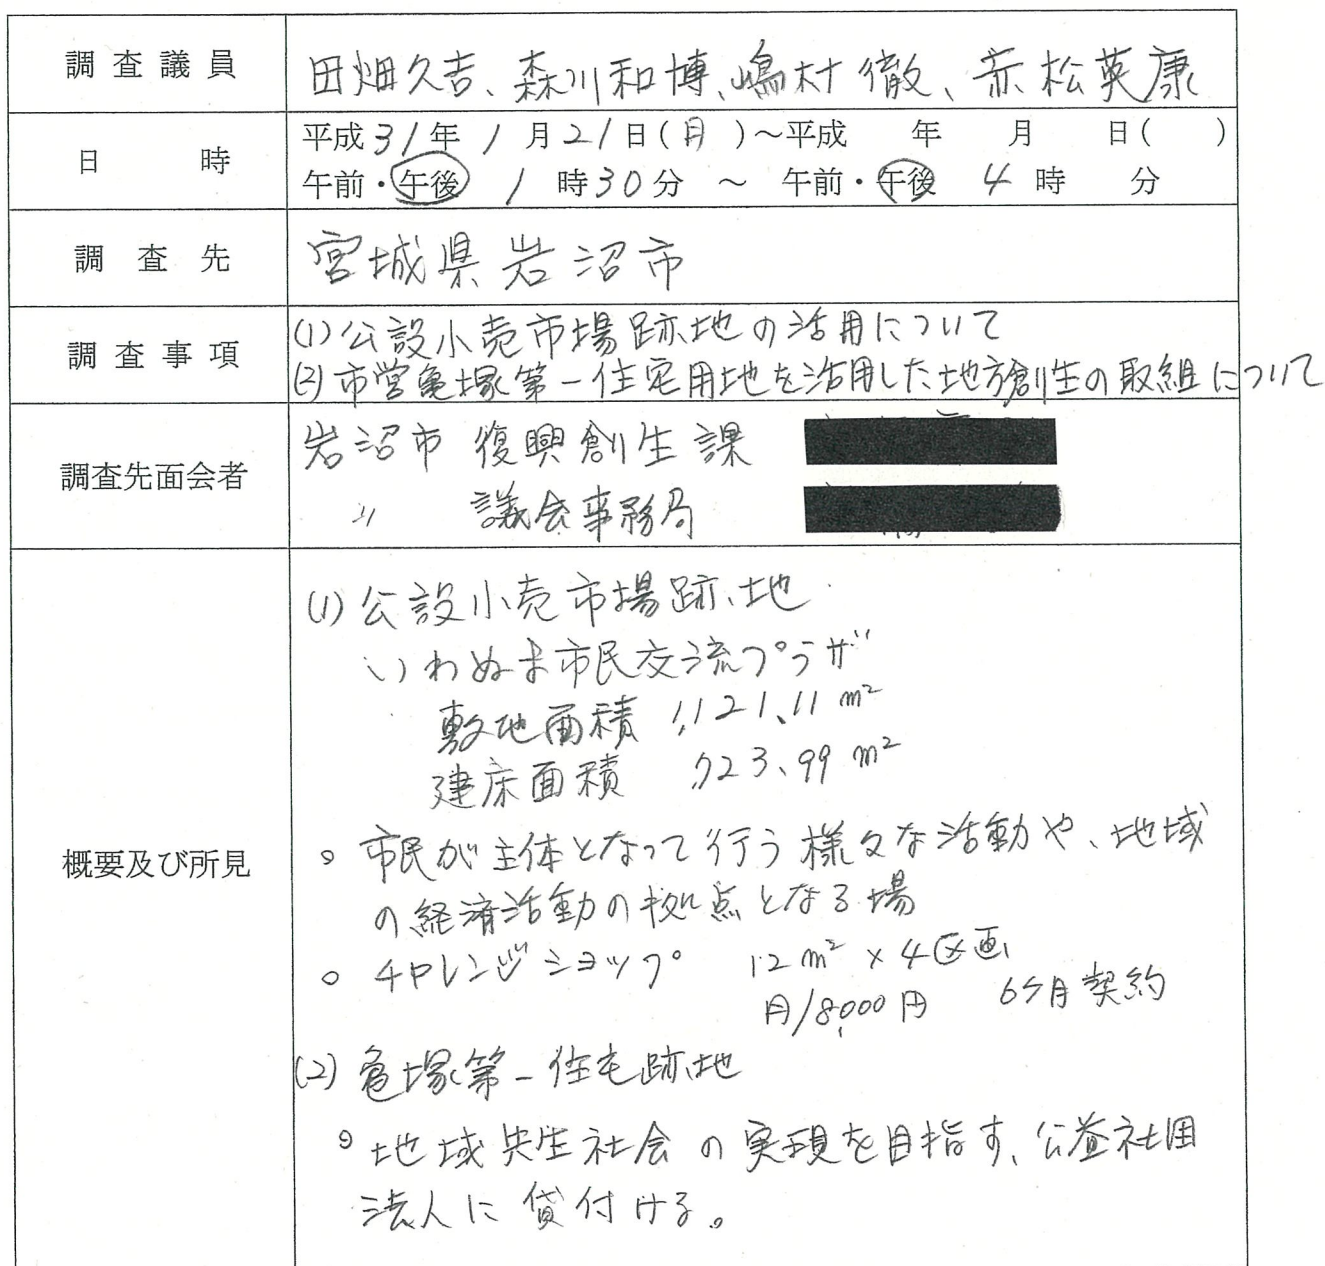 調査議員 田畑久吉、森川和博、嶋村徹、赤松英康
日時 平成31年1月21日(月)～平成 年 月 日( )
午前・午後 1時30分 ～ 午前・午後 4時 分
調査先 宮城県岩沼市
調査事項 (1)公設小売市場跡地の活用について
(2)市営亀塚第一住宅用地を活用した地方創生の取組について
調査先面会者 岩沼市 復興創生課
〃 議会事務局
概要及び所見
(1)公設小売市場跡地
いわぬま市民交流プラザ
敷地面積 1,121.11m²
建床面積 723.99m²
。市民が主体となって行う様々な活動や、地域
の経済活動の拠点となる場
。チャレンジショップ 12m²×4区画
月/8,000円 6ヶ月契約
(2)亀塚第一住宅跡地
。地域共生社会の実現を目指す、公益社団
法人に貸付ける。